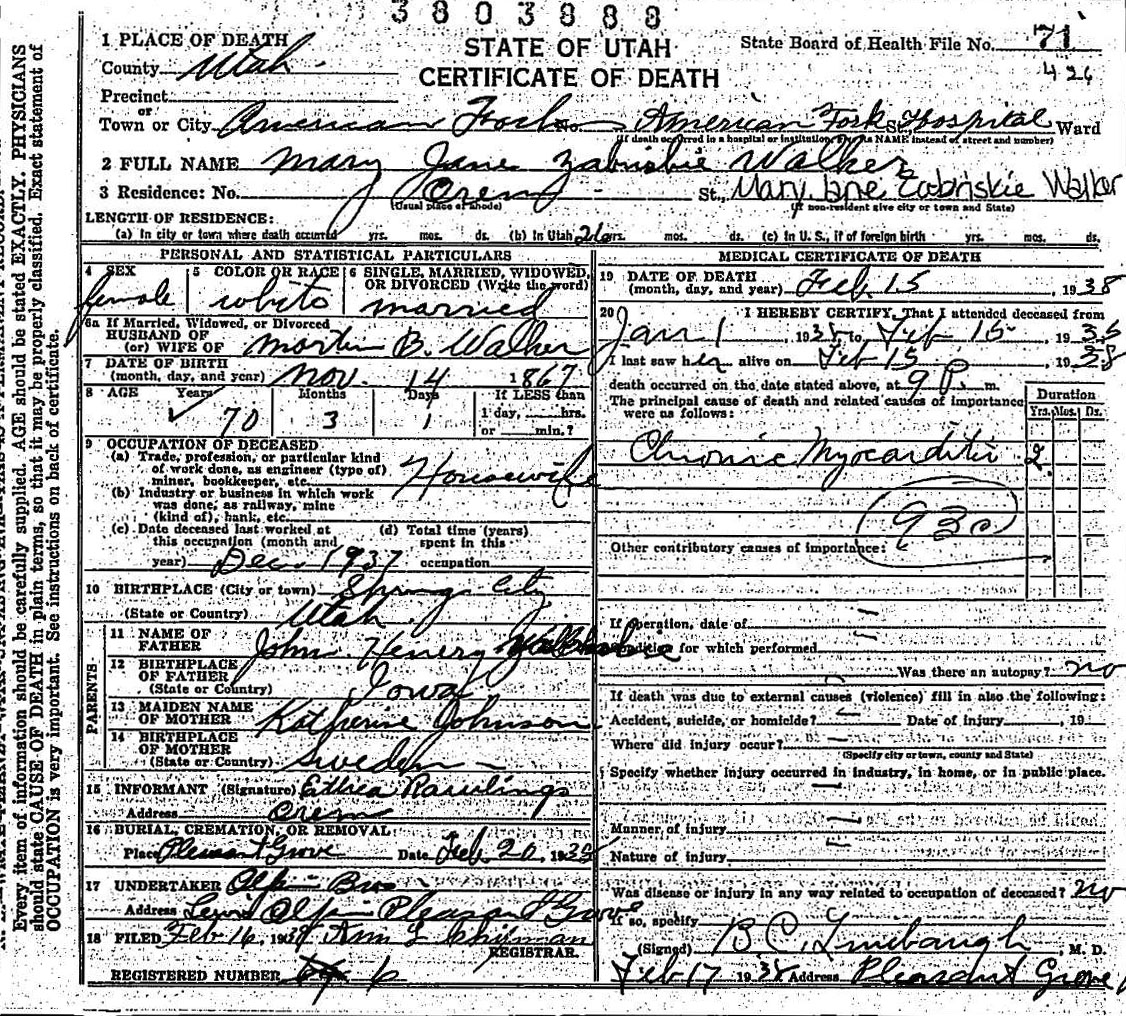 3803888
1 PLACE OF DEATH
STATE OF UTAH
CERTIFICATE OF DEATH
State Board of Health File No. 71
426
County Utah
Precinct
or
Town or City American Fork No. American Fork St. Hospital Ward
(If death occurred in a hospital or institution, give its NAME instead of street and number)
2 FULL NAME Mary Jane Zabriskie Walker
3 Residence: No. Orem St., Mary Jane Zabriskie Walker
(Usual place of abode) (If non-resident give city or town and State)
LENGTH OF RESIDENCE:
(a) In city or town where death occurred yrs. mos. ds. (b) In Utah yrs. mos. ds. (c) In U. S., if of foreign birth yrs. mos. ds.
PERSONAL AND STATISTICAL PARTICULARS
4 SEX female
5 COLOR OR RACE white
6 SINGLE, MARRIED, WIDOWED, OR DIVORCED (Write the word) married
6a If Married, Widowed, or Divorced
HUSBAND OF
(or) WIFE OF Martin B. Walker
7 DATE OF BIRTH
(month, day, and year) Nov. 14 1867
8 AGE Years 70 Months 3 Days 1 If LESS than
1 day, hrs.
or min.?
9 OCCUPATION OF DECEASED
(a) Trade, profession, or particular kind
of work done, as engineer (type of)
miner, bookkeeper, etc. Housewife
(b) Industry or business in which work
was done, as railway, mine
(kind of), bank, etc.
(c) Date deceased last worked at
this occupation (month and
year) Dec. 1937
(d) Total time (years)
spent in this
occupation
10 BIRTHPLACE (City or town) Spring City
(State or Country) Utah
PARENTS
11 NAME OF
FATHER John Henery
12 BIRTHPLACE
OF FATHER
(State or Country) Iowa
13 MAIDEN NAME
OF MOTHER Katherine Johnson
14 BIRTHPLACE
OF MOTHER
(State or Country) Sweden
15 INFORMANT (Signature) Rawlings
Address Orem
16 BURIAL, CREMATION, OR REMOVAL:
Place Pleasant Grove Date Feb. 20, 1938
17 UNDERTAKER Olpin Bros
Address Olpin Pleasant Grove
18 FILED Feb 16, 1938
REGISTRAR.
REGISTERED NUMBER 6
MEDICAL CERTIFICATE OF DEATH
19 DATE OF DEATH
(month, day, and year) Feb. 15, 1938
20 I HEREBY CERTIFY, That I attended deceased from
Jan 1, 1938 to, Feb 15, 1938
I last saw her alive on Feb 15, 1938
death occurred on the date stated above, at 9 P. m.
The principal cause of death and related causes of importance
were as follows:
Duration
Yrs. Mos. Ds.
Chronic Myocarditis 2
93c
Other contributory causes of importance:
If operation, date of
Condition for which performed
Was there an autopsy? no
If death was due to external causes (violence) fill in also the following:
Accident, suicide, or homicide? Date of injury, 19
Where did injury occur?
(Specify city or town, county and State)
Specify whether injury occurred in industry, in home, or in public place.
Manner of injury
Nature of injury
Was disease or injury in any way related to occupation of deceased? no
If so, specify
(Signed) B C Linebaugh, M. D.
Feb 17 1938 Address Pleasant Grove
Every item of information should be carefully supplied. AGE should be stated EXACTLY. PHYSICIANS
should state CAUSE OF DEATH in plain terms, so that it may be properly classified. Exact statement of
OCCUPATION is very important. See instructions on back of certificate.